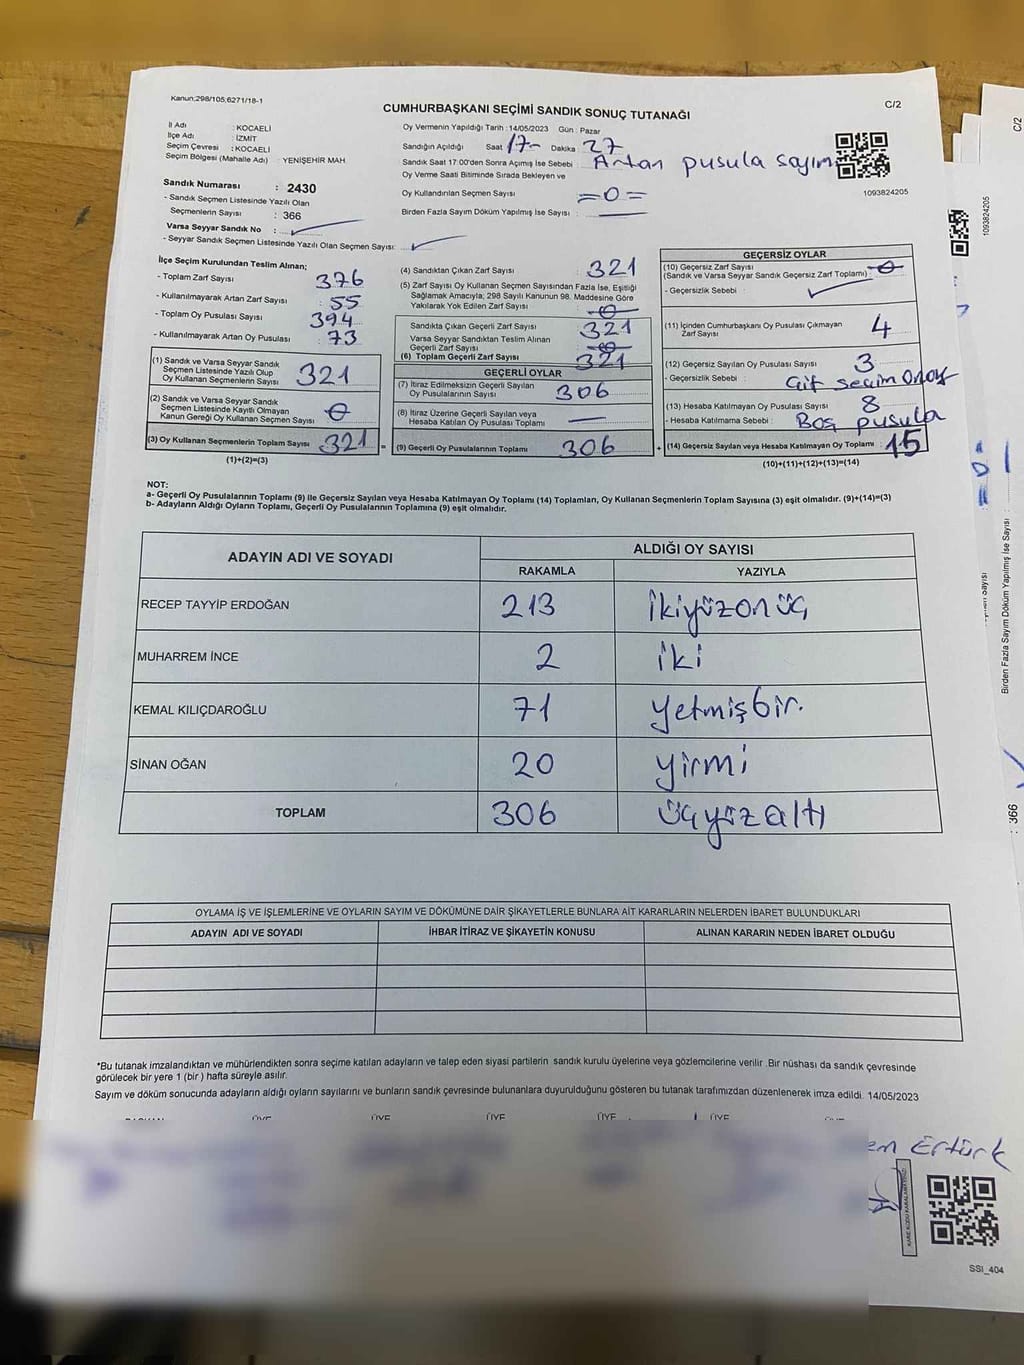 Kanun:298/105;6271/18-1
C/2
CUMHURBAŞKANI SEÇİMİ SANDIK SONUÇ TUTANAĞI
İl Adı : KOCAELİ
İlçe Adı : İZMİT
Seçim Çevresi : KOCAELİ
Seçim Bölgesi (Mahalle Adı) : YENİŞEHİR MAH
Sandık Numarası : 2430
- Sandık Seçmen Listesinde Yazılı Olan
Seçmenlerin Sayısı : 366
Varsa Seyyar Sandık No :
- Seyyar Sandık Seçmen Listesinde Yazılı Olan Seçmen Sayısı:
Oy Vermenin Yapıldığı Tarih : 14/05/2023 Gün : Pazar
Sandığın Açıldığı Saat 17- Dakika 27
Sandık Saat 17:00'den Sonra Açımış İse Sebebi : Artan pusula sayım
Oy Verme Saati Bitiminde Sırada Bekleyen ve
Oy Kullandırılan Seçmen Sayısı =0=
Birden Fazla Sayım Döküm Yapılmış İse Sayısı :
1093824205
İlçe Seçim Kurulundan Teslim Alınan;
- Toplam Zarf Sayısı 376
- Kullanılmayarak Artan Zarf Sayısı : 55
- Toplam Oy Pusulası Sayısı 394
- Kullanılmayarak Artan Oy Pusulası : 73
(1) Sandık ve Varsa Seyyar Sandık
Seçmen Listesinde Yazılı Olup
Oy Kullanan Seçmenlerin Sayısı : 321
(2) Sandık ve Varsa Seyyar Sandık
Seçmen Listesinde Kayıtlı Olmayan
Kanun Gereği Oy Kullanan Seçmen Sayısı : 0
(3) Oy Kullanan Seçmenlerin Toplam Sayısı : 321
(1)+(2)=(3)
(4) Sandıktan Çıkan Zarf Sayısı : 321
(5) Zarf Sayısı Oy Kullanan Seçmen Sayısından Fazla İse, Eşitliği
Sağlamak Amacıyla; 298 Sayılı Kanunun 98. Maddesine Göre
Yakılarak Yok Edilen Zarf Sayısı : 0
Sandıkta Çıkan Geçerli Zarf Sayısı : 321
Varsa Seyyar Sandıktan Teslim Alınan
Geçerli Zarf Sayısı : 0
(6) Toplam Geçerli Zarf Sayısı : 321
GEÇERLİ OYLAR
(7) İtiraz Edilmeksizin Geçerli Sayılan
Oy Pusulalarının Sayısı : 306
(8) İtiraz Üzerine Geçerli Sayılan veya
Hesaba Katılan Oy Pusulası Toplamı :
(9) Geçerli Oy Pusulalarının Toplamı : 306
GEÇERSİZ OYLAR
(10) Geçersiz Zarf Sayısı : 0
(Sandık ve Varsa Seyyar Sandık Geçersiz Zarf Toplamı)
- Geçersizlik Sebebi :
(11) İçinden Cumhurbaşkanı Oy Pusulası Çıkmayan
Zarf Sayısı : 4
(12) Geçersiz Sayılan Oy Pusulası Sayısı : 3
- Geçersizlik Sebebi : Çift seçim onay
(13) Hesaba Katılmayan Oy Pusulası Sayısı : 8
- Hesaba Katılmama Sebebi : Boş pusula
(14) Geçersiz Sayılan veya Hesaba Katılmayan Oy Toplamı : 15
(10)+(11)+(12)+(13)=(14)
NOT:
a- Geçerli Oy Pusulalarının Toplamı (9) ile Geçersiz Sayılan veya Hesaba Katılmayan Oy Toplamı (14) Toplamları, Oy Kullanan Seçmenlerin Toplam Sayısına (3) eşit olmalıdır. (9)+(14)=(3)
b- Adayların Aldığı Oyların Toplamı, Geçerli Oy Pusulalarının Toplamına (9) eşit olmalıdır.
ADAYIN ADI VE SOYADI
ALDIĞI OY SAYISI
RAKAMLA YAZIYLA
RECEP TAYYİP ERDOĞAN 213 ikiyüzonüç
MUHARREM İNCE 2 iki
KEMAL KILIÇDAROĞLU 71 yetmişbir.
SİNAN OĞAN 20 yirmi
TOPLAM 306 üçyüzaltı
OYLAMA İŞ VE İŞLEMLERİNE VE OYLARIN SAYIM VE DÖKÜMÜNE DAİR ŞİKAYETLERLE BUNLARA AİT KARARLARIN NELERDEN İBARET BULUNDUKLARI
ADAYIN ADI VE SOYADI İHBAR İTİRAZ VE ŞİKAYETİN KONUSU ALINAN KARARIN NEDEN İBARET OLDUĞU
*Bu tutanak imzalandıktan ve mühürlendikten sonra seçime katılan adayların ve talep eden siyasi partilerin sandık kurulu üyelerine veya gözlemcilerine verilir .Bir nüshası da sandık çevresinde
görülecek bir yere 1 (bir ) hafta süreyle asılır.
Sayım ve döküm sonucunda adayların aldığı oyların sayılarını ve bunların sandık çevresinde bulunanlara duyurulduğunu gösteren bu tutanak tarafımızdan düzenlenerek imza edildi. 14/05/2023
ÜYE ÜYE ÜYE ÜYE ÜYE
Ertürk
SSI_404
C/2
1093824205
=0=
Birden Fazla Sayım Döküm Yapılmış İse Sayısı :
: 366